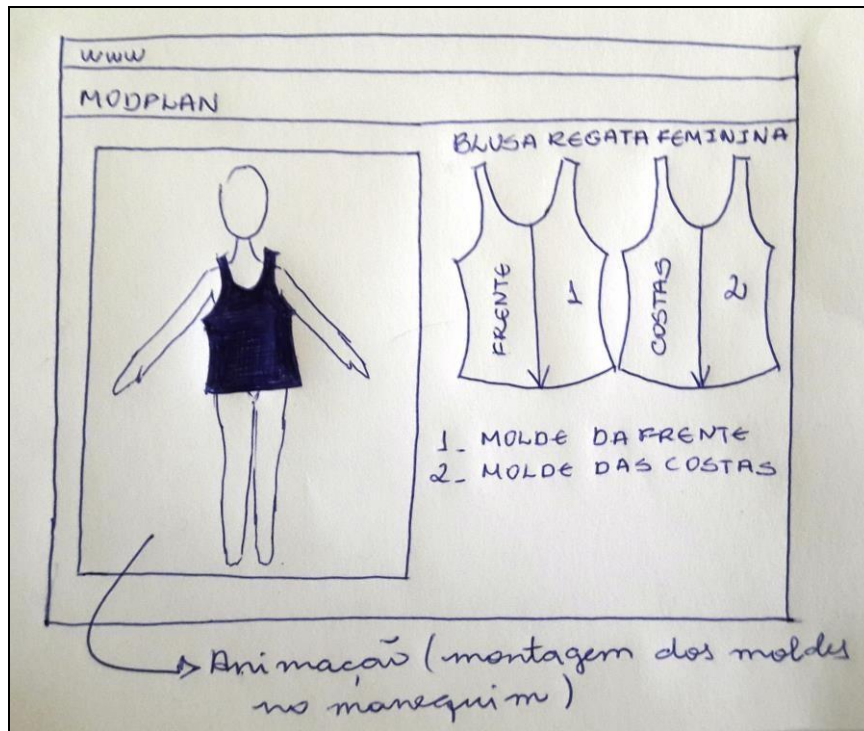 www
MODPLAN
BLUSA REGATA FEMININA
FRENTE
1
COSTAS
2
1_ MOLDE DA FRENTE
2_ MOLDE DAS COSTAS
Animação (montagem dos moldes
no manequim)